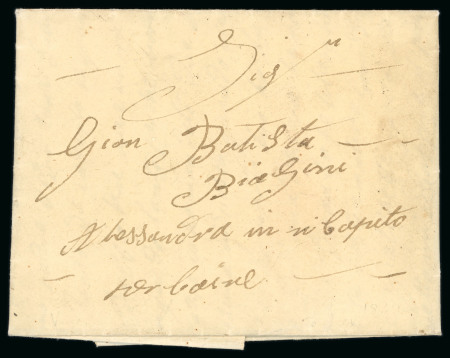 Sigr
Gion Batista
Biagini
Alessandra in ricapito
per Caire